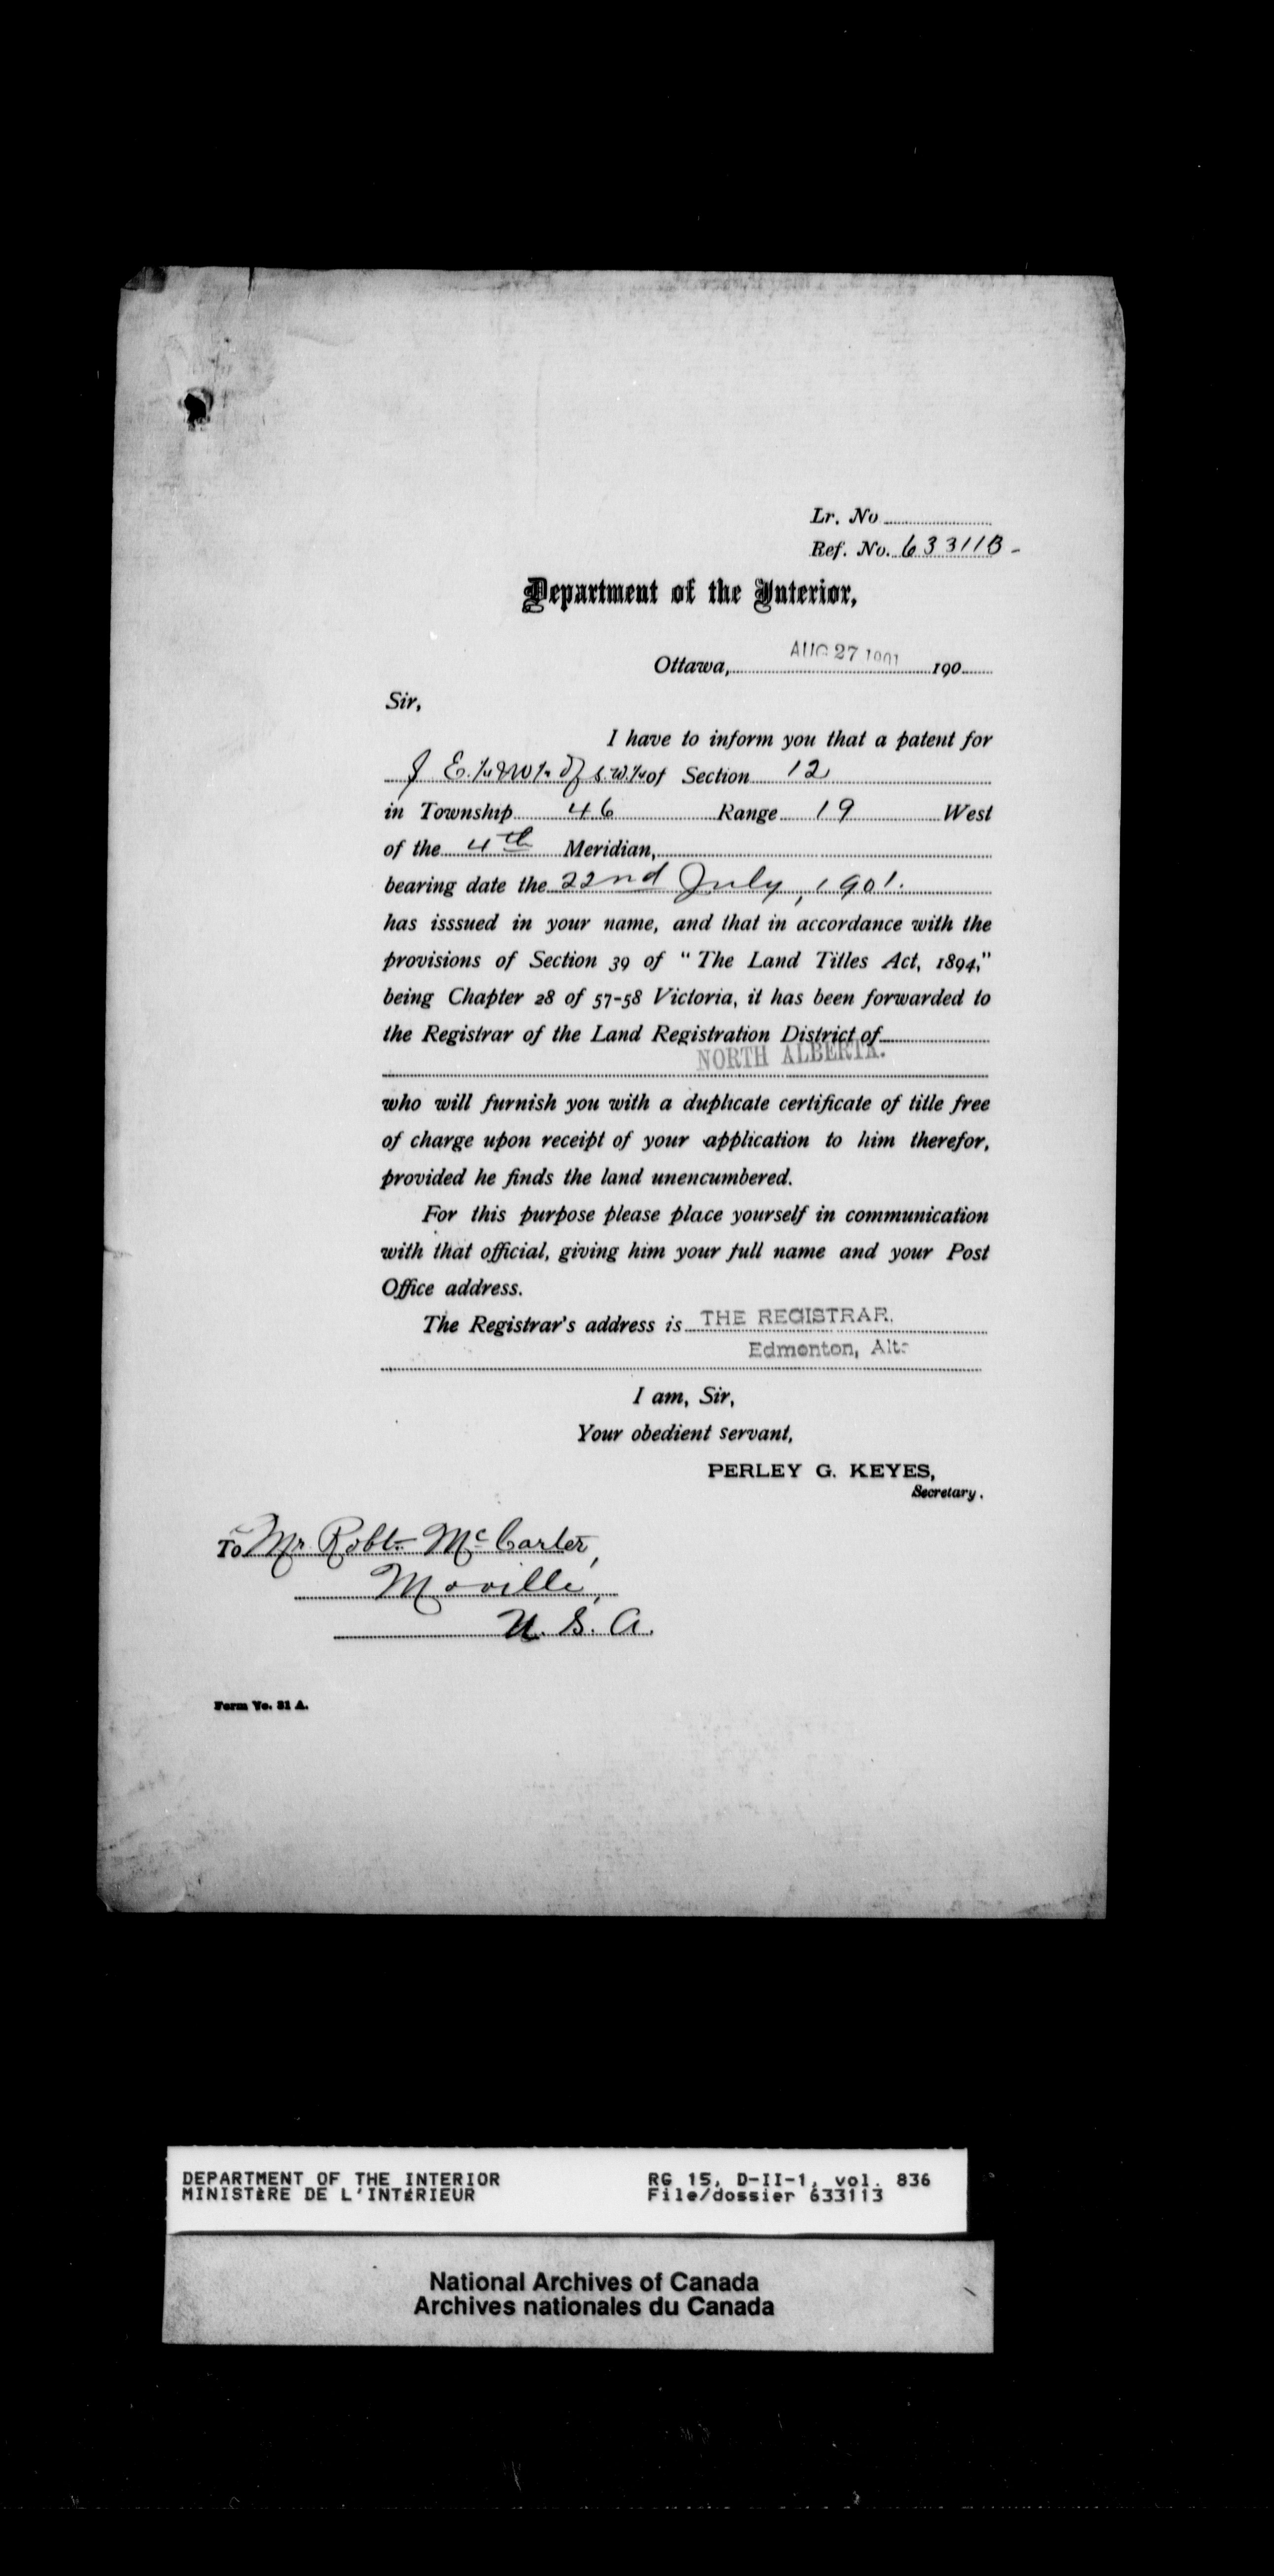 Lr. No
Ref. No. 633113
Department of the Interior,
Ottawa, AUG 27 1901 190
Sir,
I have to inform you that a patent for
E. 1/4 & N 1/2 of S.W. 1/4 of Section 12
in Township 46 Range 19 West
of the 4th Meridian,
bearing date the 22nd July, 1901.
has isssued in your name, and that in accordance with the
provisions of Section 39 of "The Land Titles Act, 1894,"
being Chapter 28 of 57-58 Victoria, it has been forwarded to
the Registrar of the Land Registration District of
NORTH ALBERTA.
who will furnish you with a duplicate certificate of title free
of charge upon receipt of your application to him therefor,
provided he finds the land unencumbered.
For this purpose please place yourself in communication
with that official, giving him your full name and your Post
Office address.
The Registrar's address is THE REGISTRAR,
Edmonton, Alta
I am, Sir,
Your obedient servant,
PERLEY G. KEYES,
Secretary.
To Mr. Robt. McCarter,
Moville,
U. S. A.
Form No. 31 A.
DEPARTMENT OF THE INTERIOR RG 15, D-II-1, vol. 836
MINISTÈRE DE L'INTÉRIEUR File/dossier 633113
National Archives of Canada
Archives nationales du Canada